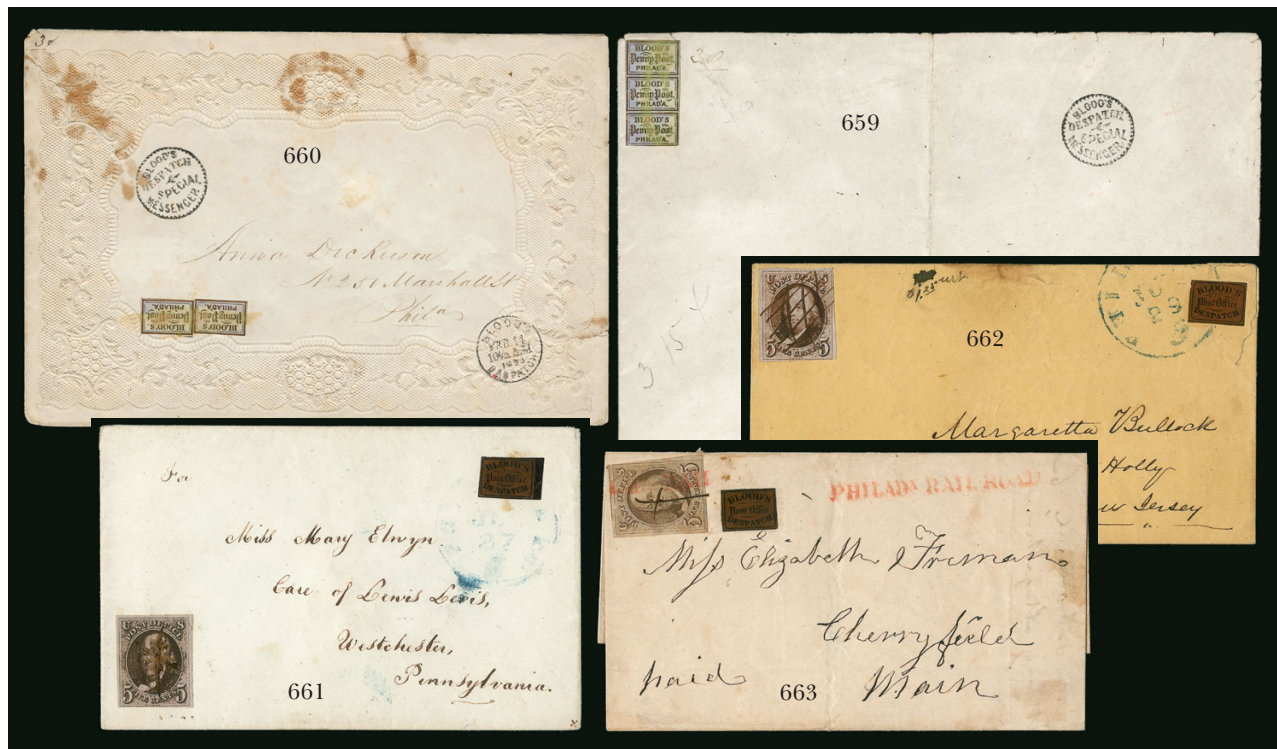 30
BLOOD'S
DESPATCH
SPECIAL
MESSENGER
660
Anna Dickerson
No 250 Marshall St
Phila
BLOOD'S
Penny Post
PHILAD'A.
BLOOD'S
Penny Post
PHILAD'A.
BLOOD'S
10½ AM
DESPATCH
BLOOD'S
Penny Post.
PHILAD'A.
BLOOD'S
Penny Post.
PHILAD'A.
BLOOD'S
Penny Post.
PHILAD'A.
30
659
BLOOD'S
DESPATCH
SPECIAL
MESSENGER
3 15
POST OFFICE
5 5
662
BLOOD'S
Post Office
DESPATCH
Margaretta Bullock
Holly
w Jersey
For
BLOOD'S
Post Office
DESPATCH
27
Miss Mary Elwyn
Care of Lewis Levis,
Westchester,
Pennsylvania.
U S
POST OFFICE
5 5
661
POST OFFICE
5 5
BLOOD'S
Post Office
DESPATCH
PHILADA RAIL ROAD
Miss Elizabeth Freeman
Cherryfield
paid
Main
663